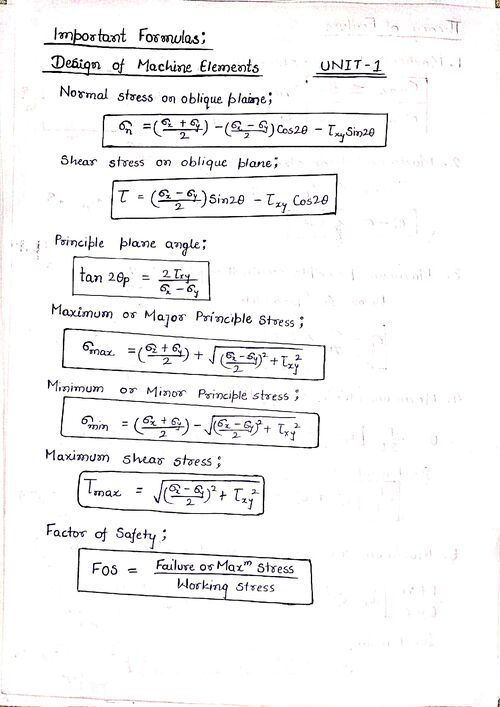 Important Formulas;
Design of Machine Elements UNIT-1
Normal stress on oblique plaine;
σn = (σx + σy / 2) - (σx - σy / 2) Cos2θ - τxy Sin2θ
Shear stress on oblique plane;
τ = (σx - σy / 2) Sin2θ - τxy Cos2θ
Principle plane angle;
tan 2θp = 2τxy / σx - σy
Maximum or Major Principle Stress;
σmax = (σx + σy / 2) + √(σx - σy / 2)² + τxy²
Minimum or Minor Principle stress;
σmin = (σx + σy / 2) - √(σx - σy / 2)² + τxy²
Maximum shear stress;
τmax = √(σx - σy / 2)² + τxy²
Factor of Safety;
FOS = Failure or Maxm Stress / Working Stress